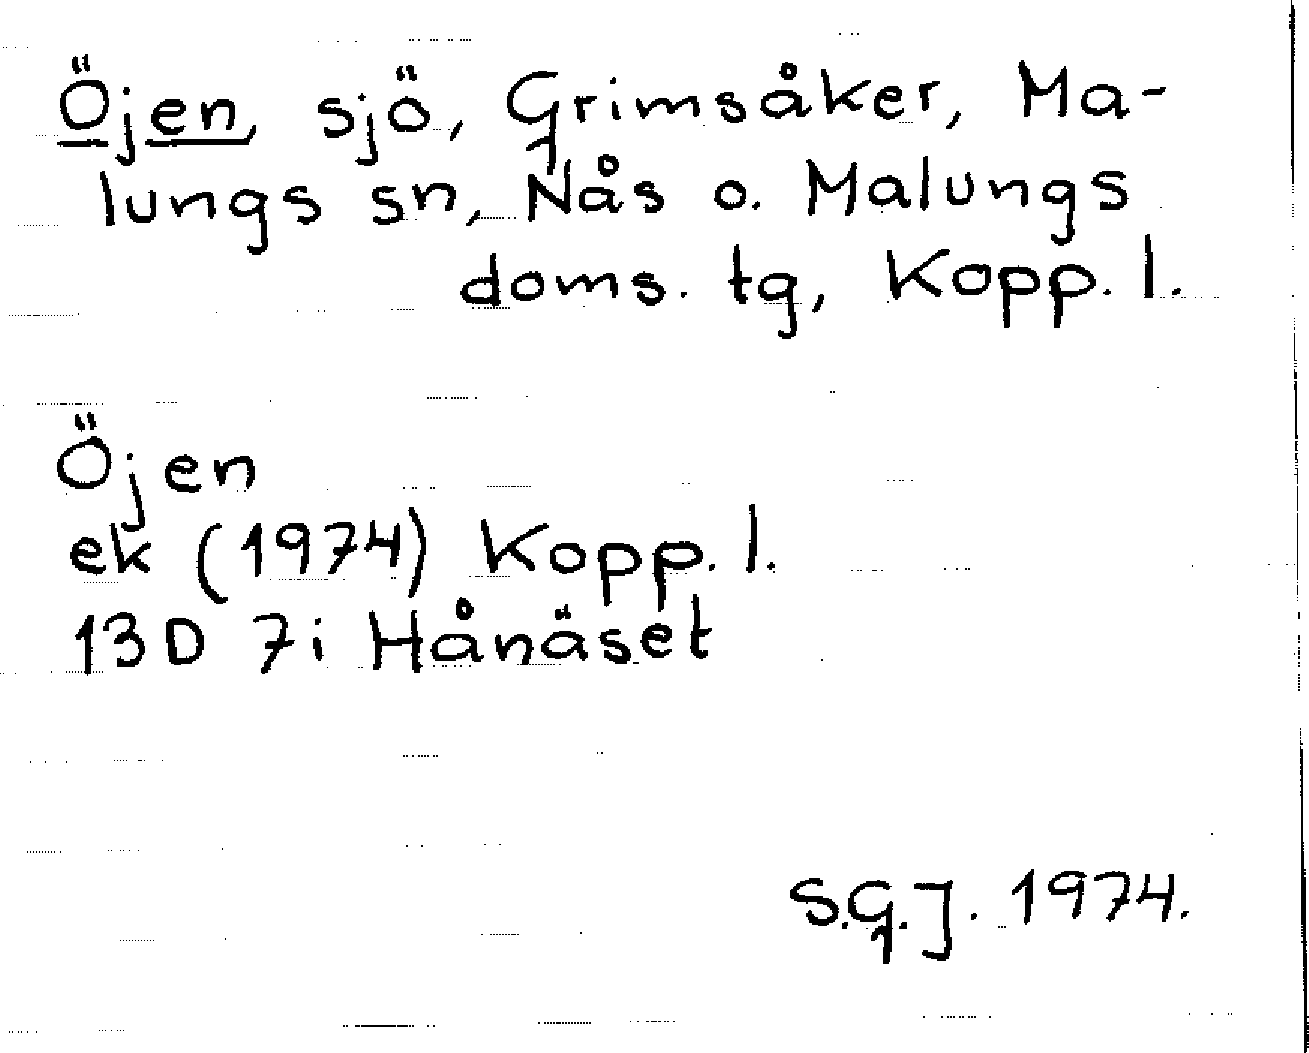 Öjen, sjö, Grimsåker, Ma-
lungs sn, Nås o. Malungs
doms. tg, Kopp. l.
Öjen
ek (1974) Kopp. l.
13D 7i Hånäset
S.G.J. 1974.